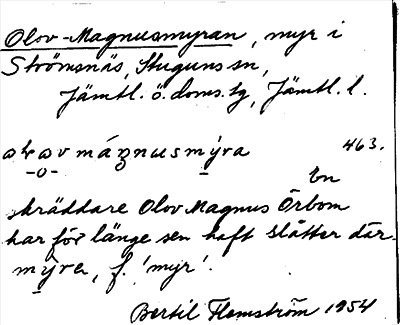 Olov-Magnusmyran, myr i
Strömsnäs, Stuguns sn,
Jämtl. ö. doms. tg, Jämtl. l.
463.
En
skräddare Olov Magnus Örbom
har för länge sen haft slåtter där.
myra, f. 'myr'.
Bertil Flemström 1954